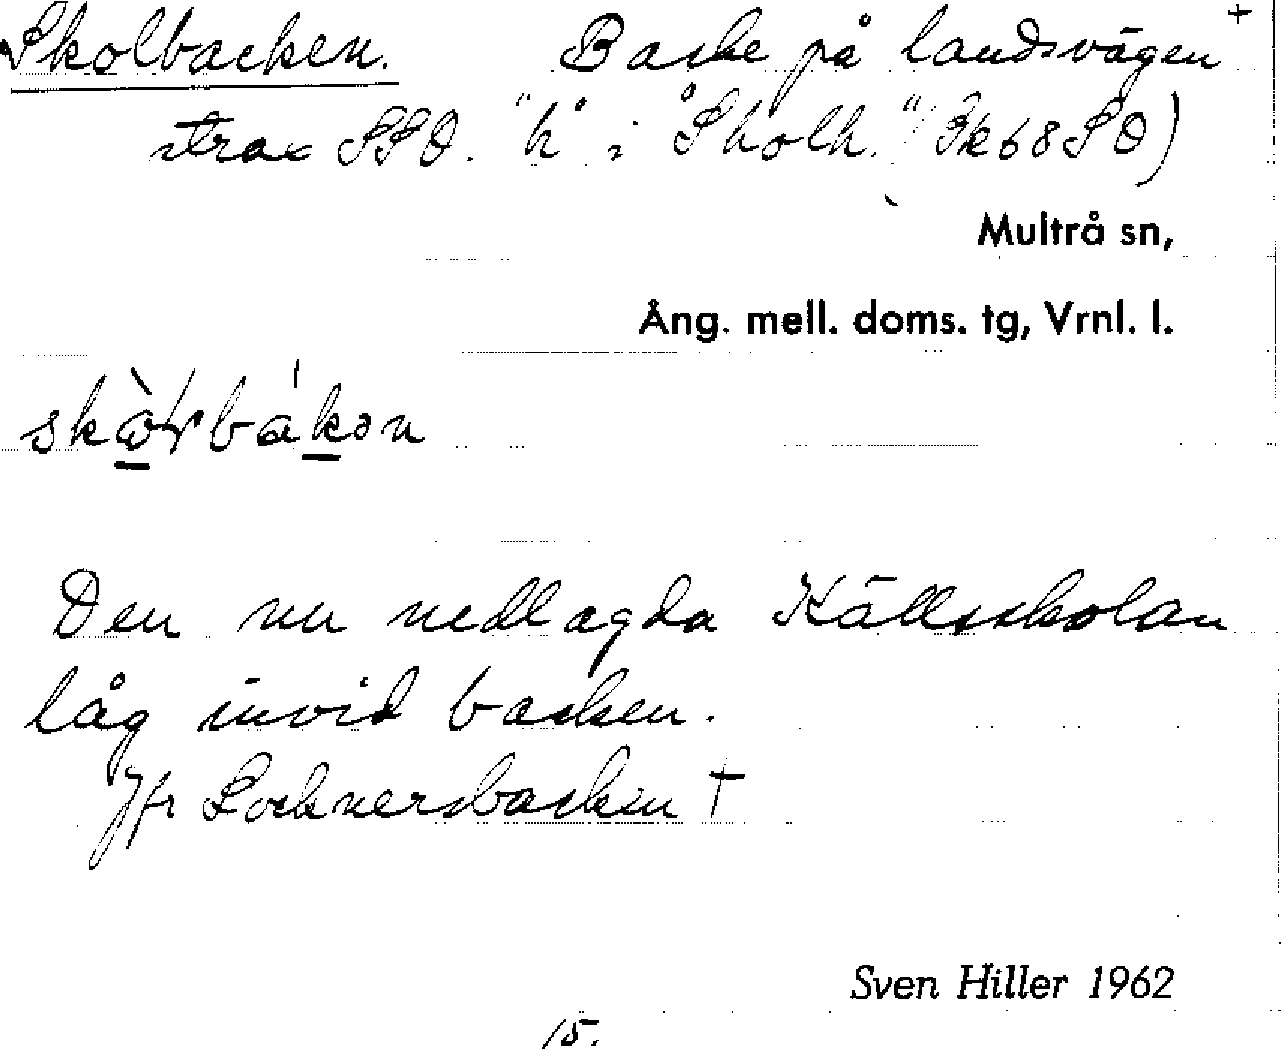 Skolbacken. Backe på landsvägen +
strax SSO. "h" i "Skolh." (3k68SO)
Multrå sn,
Ång. mell. doms. tg, Vrnl. l.
Den nu nedlagda Källsskolan
låg invid backen.
Jfr Locknersbacken †
Sven Hiller 1962
15.